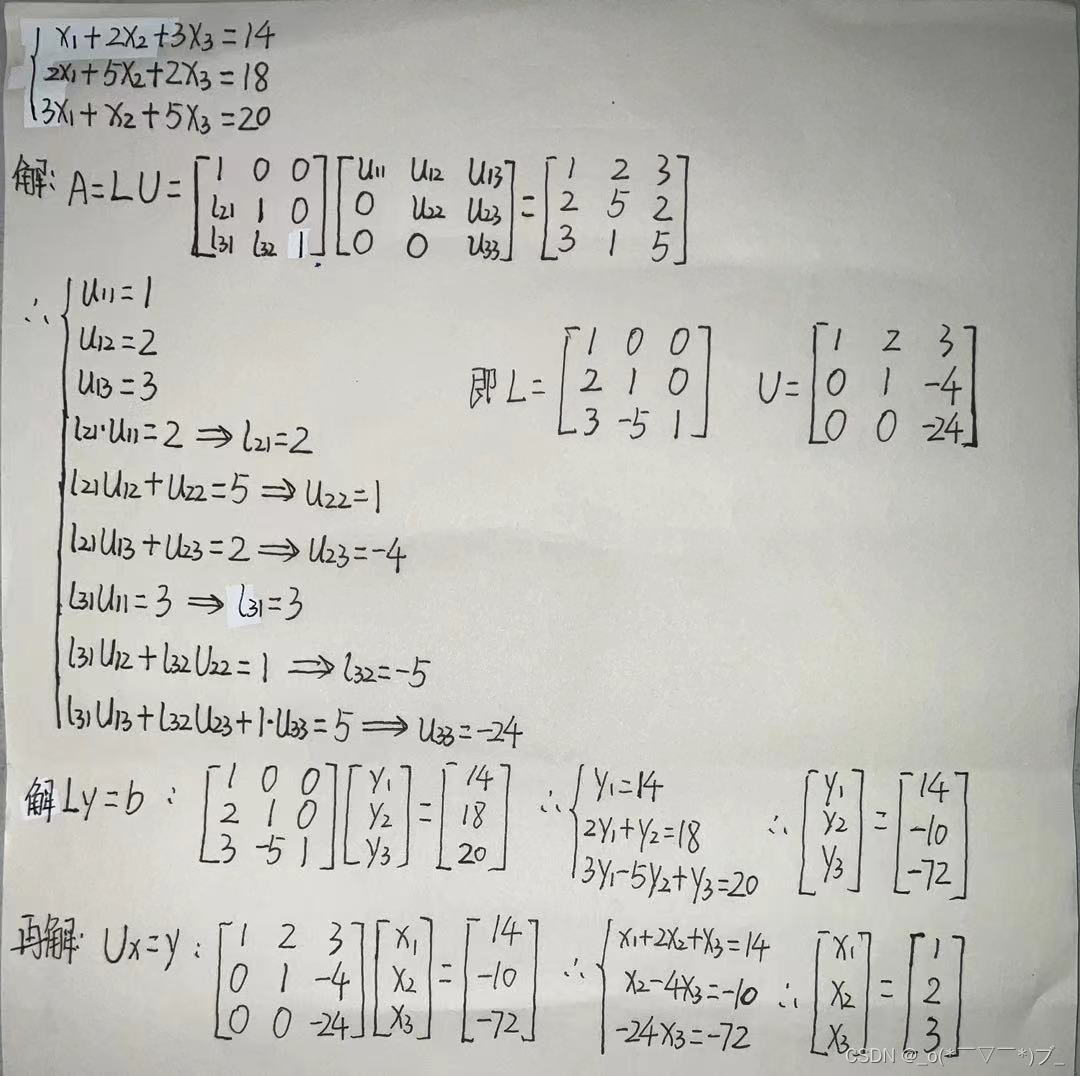 x₁+2x₂+3x₃=14
2x₁+5x₂+2x₃=18
3x₁+x₂+5x₃=20
解: A=LU= [1 0 0; l₂₁ 1 0; l₃₁ l₃₂ 1] [u₁₁ u₁₂ u₁₃; 0 u₂₂ u₂₃; 0 0 u₃₃] = [1 2 3; 2 5 2; 3 1 5]
∴ { u₁₁=1
u₁₂=2
u₁₃=3
l₂₁·u₁₁=2 ⇒ l₂₁=2
l₂₁u₁₂+u₂₂=5 ⇒ u₂₂=1
l₂₁u₁₃+u₂₃=2 ⇒ u₂₃=-4
l₃₁u₁₁=3 ⇒ l₃₁=3
l₃₁u₁₂+l₃₂u₂₂=1 ⇒ l₃₂=-5
l₃₁u₁₃+l₃₂u₂₃+1·u₃₃=5 ⇒ u₃₃=-24
即 L= [1 0 0; 2 1 0; 3 -5 1] U= [1 2 3; 0 1 -4; 0 0 -24]
解 Ly=b : [1 0 0; 2 1 0; 3 -5 1] [y₁; y₂; y₃] = [14; 18; 20] ∴ { y₁=14; 2y₁+y₂=18; 3y₁-5y₂+y₃=20 ∴ [y₁; y₂; y₃] = [14; -10; -72]
再解: Ux=y : [1 2 3; 0 1 -4; 0 0 -24] [x₁; x₂; x₃] = [14; -10; -72] ∴ { x₁+2x₂+x₃=14; x₂-4x₃=-10; -24x₃=-72 ∴ [x₁; x₂; x₃] = [1; 2; 3]
CSDN @_o(*￣▽￣*)ブ_